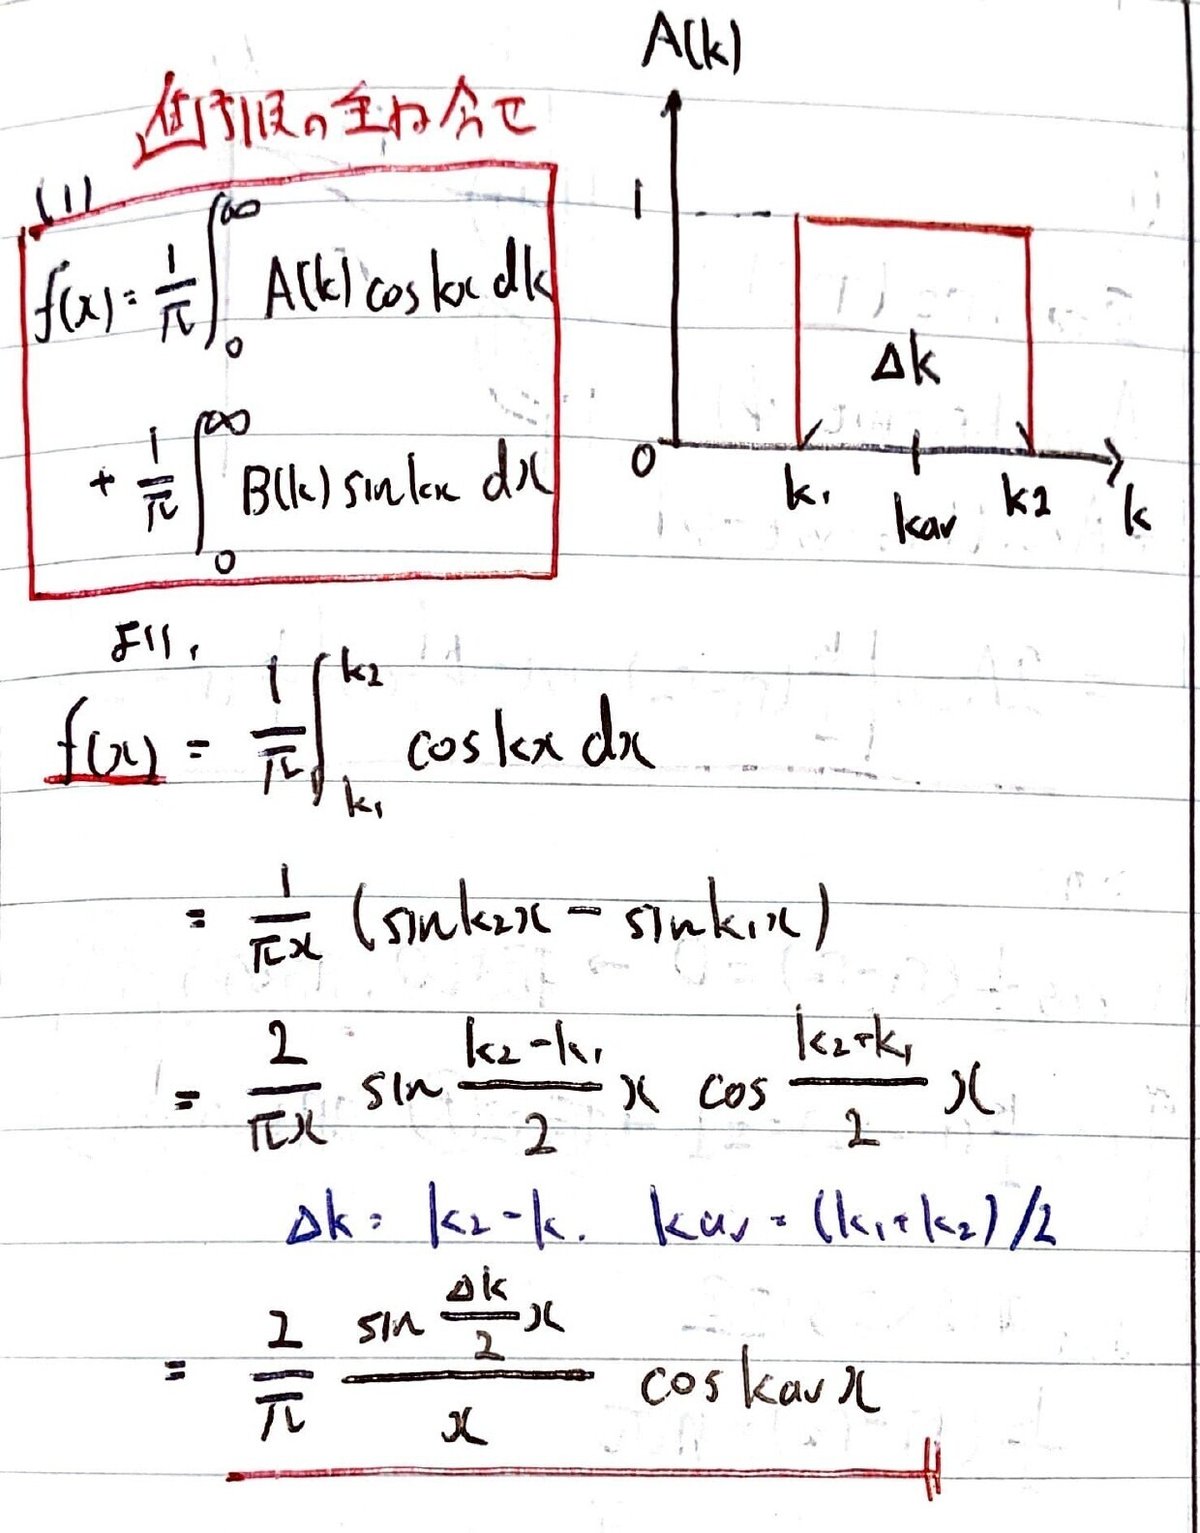 進行波の重ね合せ
(1)
f(x) = 1/π ∫₀^∞ A(k) cos kx dk
+ 1/π ∫₀^∞ B(k) sin kx dx
A(k)
1
Δk
0 k₁ kav k2 k
より、
f(x) = 1/π ∫_{k₁}^{k2} cos kx dx
= 1/πx (sin k₂x − sin k₁x)
= 2/πx sin (k₂−k₁)/2 x cos (k₂+k₁)/2 x
Δk = k₂−k. kav = (k₁+k₂)/2
= 2/π (sin Δk/2 x)/x cos kav x